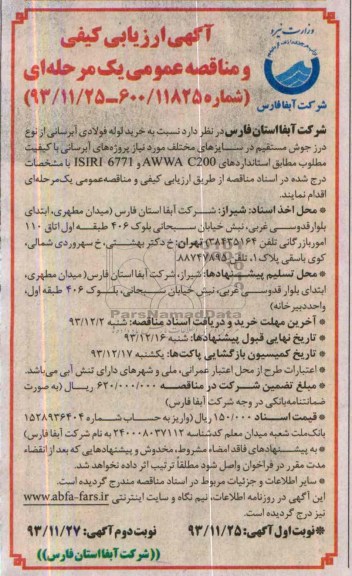 وزارت نیرو
شرکت آبفا فارس
آگهی ارزیابی کیفی
و مناقصه عمومی یک مرحله‌ای
(شماره ۶۰۰/۱۱۸۲۵-۹۳/۱۱/۲۵)
شرکت آبفا استان فارس در نظر دارد نسبت به خرید لوله فولادی آبرسانی از نوع
درز جوش مستقیم در سایزهای مختلف مورد نیاز پروژه‌های آبرسانی با کیفیت
مطلوب مطابق استانداردهای AWWA C200 و ISIRI 6771 با مشخصات
درج شده در اسناد مناقصه از طریق ارزیابی کیفی و مناقصه‌عمومی یک‌مرحله‌ای
اقدام نمایند.
* محل اخذ اسناد: شیراز: شرکت آبفا استان فارس (میدان مطهری، ابتدای
بلوار قدوسی غربی، نبش خیابان سبحانی بلوک ۴۰۶ طبقه اول اتاق ۱۱۰
امور بازرگانی تلفن ۳۸۴۳۵۱۶۴) تهران: خ دکتر بهشتی، خ سهروردی شمالی،
کوی باسقی پلاک ۱، تلفن: ۸۸۷۴۷۸۹۵
* محل تسلیم پیشنهادها: شیراز، شرکت آبفا استان فارس (میدان مطهری،
ابتدای بلوار قدوسی غربی، نبش خیابان سبحانی، بلوک ۴۰۶ طبقه اول،
واحد دبیرخانه)
ParsNamadData
* آخرین مهلت خرید و دریافت اسناد مناقصه: شنبه ۹۳/۱۲/۲
* تاریخ نهایی قبول پیشنهادها: شنبه ۹۳/۱۲/۱۶
* تاریخ کمیسیون بازگشایی پاکت‌ها: یکشنبه ۹۳/۱۲/۱۷
* اعتبارات طرح از محل اعتبار عمرانی، ملی و شهرهای دارای تنش آبی می‌باشد.
* مبلغ تضمین شرکت در مناقصه ۶۲۰/۰۰۰/۰۰۰ ریال (به صورت
ضمانتنامه‌بانکی در وجه شرکت آبفا فارس)
* قیمت اسناد ۱۵۰/۰۰۰ ریال (واریز به حساب شماره ۱۵۲۸۹۳۶۴۰۴
بانک ملت شعبه میدان معلم کدشناسه ۲۴۰۰۰۸۰۳۷۱۱۲ به نام شرکت آبفا فارس)
* به پیشنهادهای فاقد امضاء مشروط، مخدوش و پیشنهادهایی که بعد از انقضاء
مدت مقرر در فراخوان واصل شود مطلقاً ترتیب اثر داده نخواهد شد.
* سایر اطلاعات و جزئیات مربوط در اسناد مناقصه مندرج گردیده است.
این آگهی در روزنامه اطلاعات، نیم نگاه و سایت اینترنتی www.abfa-fars.ir
نیز درج گردیده است.
*نوبت اول آگهی: ۹۳/۱۱/۲۵ نوبت دوم آگهی: ۹۳/۱۱/۲۷
((شرکت آبفا استان فارس))